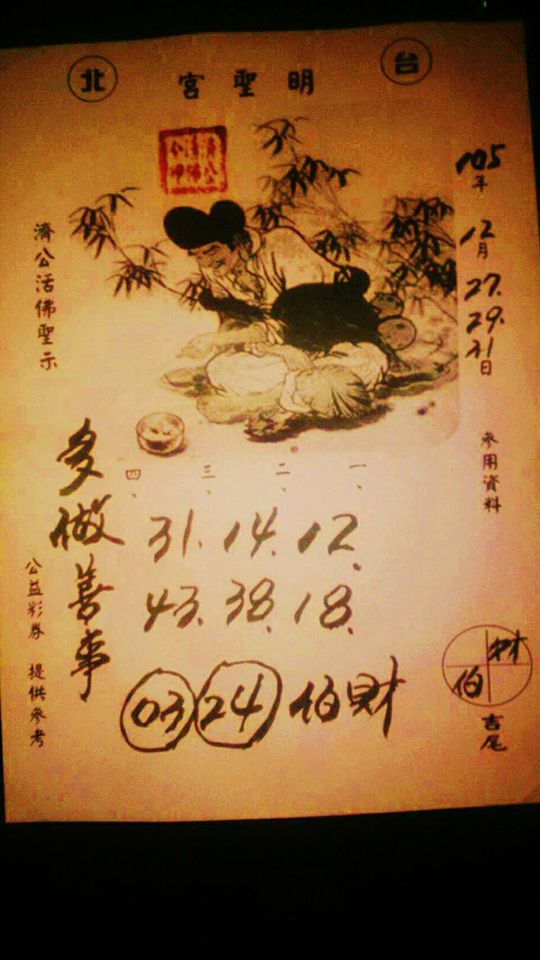 台北
明聖宮
105年
12月
27.29.31日
參用資料
財伯
吉尾
一、二、三、四、
12、14.31.
18.38.43.
財伯 24 03
多做善事
濟公活佛聖示
公益彩券 提供參考